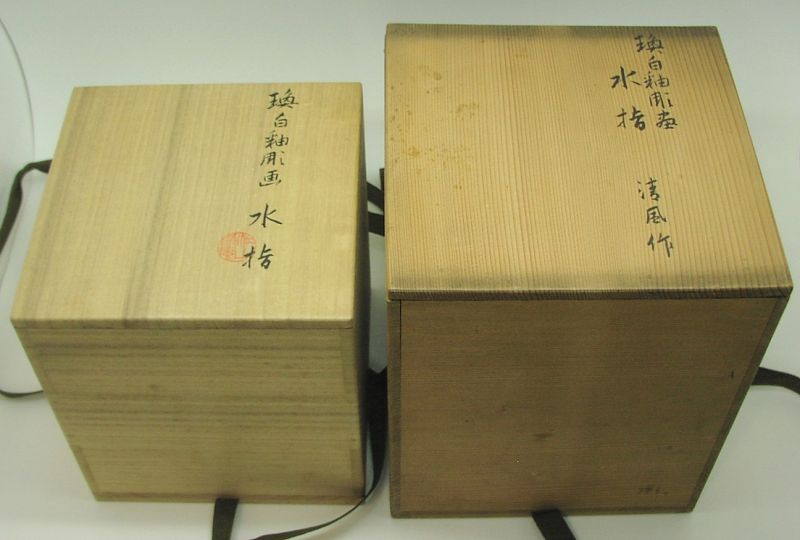 白釉彫画
水指
白釉彫畫
水指
清風作